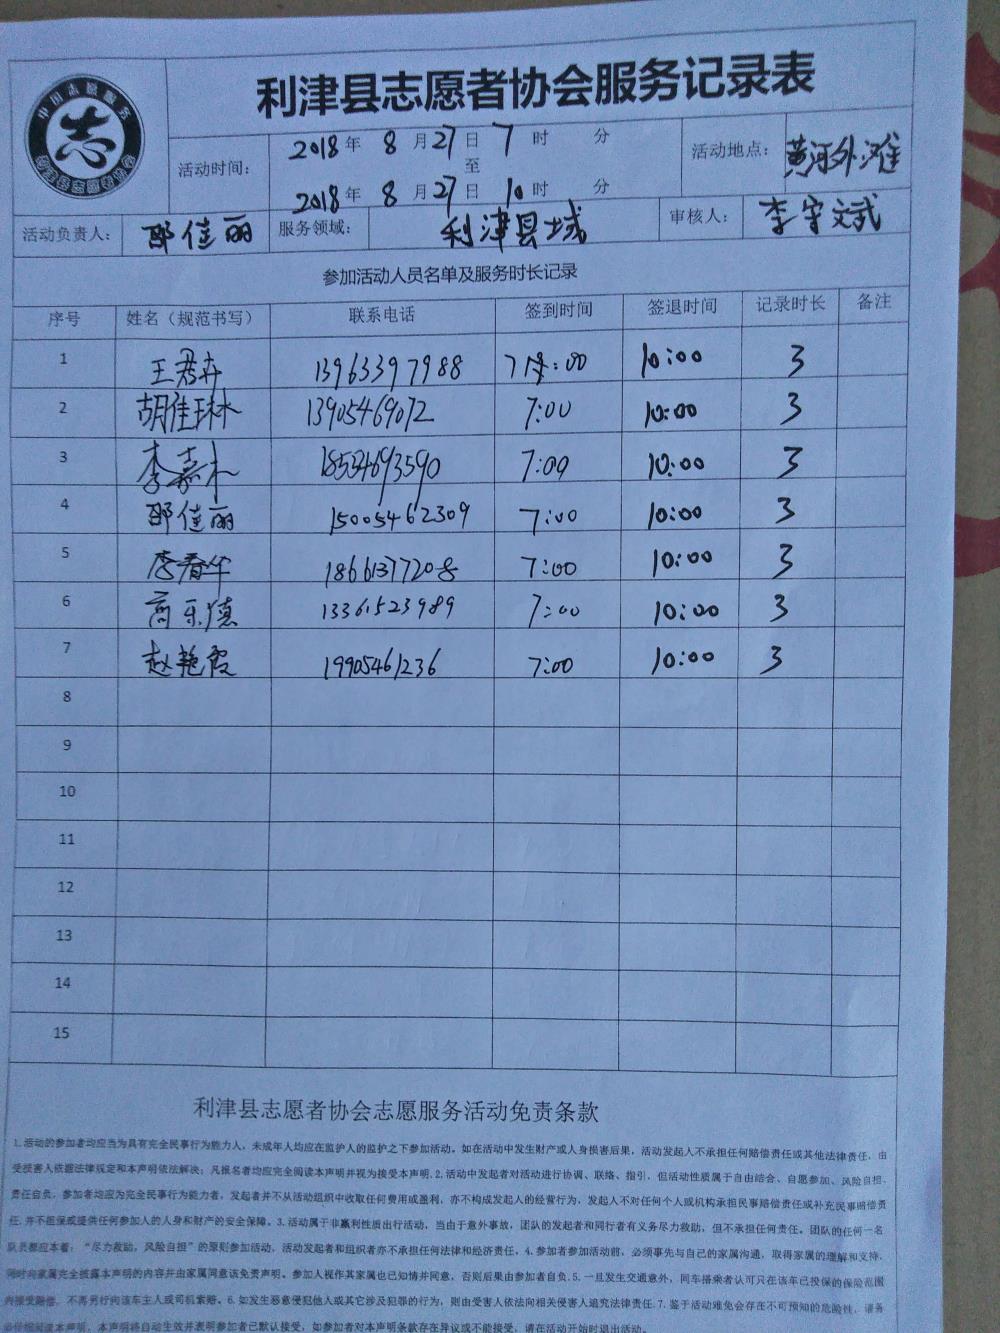 利津县志愿者协会服务记录表
中国志愿服务
志
活动时间：
2018年 8月27日 7时 分
至
2018年 8月27日 10时 分
活动地点： 黄河外滩
活动负责人： 邵佳丽 服务领域： 利津县城 审核人： 李守文斌
参加活动人员名单及服务时长记录
序号 姓名（规范书写） 联系电话 签到时间 签退时间 记录时长 备注
1 王君卉 13963397988 7:00 10:00 3
2 胡佳琳 13905469072 7:00 10:00 3
3 李嘉木 18554693590 7:00 10:00 3
4 邵佳丽 15005462309 7:00 10:00 3
5 李春华 18661377208 7:00 10:00 3
6 高乐德 13361523989 7:00 10:00 3
7 赵艳霞 19905461236 7:00 10:00 3
8
9
10
11
12
13
14
15
利津县志愿者协会志愿服务活动免责条款
1.活动的参加者均应当为具有完全民事行为能力人，未成年人均应在监护人的监护之下参加活动。如在活动中发生财产或人身损害后果，活动发起人不承担任何赔偿责任或其他法律责任，由
受损害人依据法律规定和本声明依法解决；凡报名者均应完全阅读本声明并视为接受本声明.2.活动中发起者对活动进行协调、联络、指引，但活动性质属于自由结合、自愿参加、风险自担、
责任自负，参加者均应为完全民事行为能力者，发起者并不从活动组织中收取任何费用或盈利，亦不构成发起人的经营行为，发起人不对任何个人或机构承担民事赔偿责任或补充民事赔偿责
任.并不担保或提供任何参加人的人身和财产的安全保障。3.活动属于非赢利性质出行活动，当由于意外事故，团队的发起者和同行者有义务尽力救助，但不承担任何责任。团队的任何一名
队员都应本着：“尽力救助，风险自担”的原则参加活动，活动发起者和组织者亦不承担任何法律和经济责任。4.参加者参加活动前，必须事先与自己的家属沟通，取得家属的理解和支持，
同时向家属完全披露本声明的内容并由家属同意该免责声明。参加人视作其家属也已知情并同意，否则后果由参加者自负.5.一旦发生交通意外，同车搭乘者认可只在该车已投保的保险范围
内接受赔偿，不再另行向该车主人或司机索赔。6.如发生恶意侵犯他人或其它涉及犯罪的行为，则由受害人依法向相关侵害人追究法律责任.7.鉴于活动难免会存在不可预知的危险性，请务
必仔细阅读本声明，本声明将自动生效并表明参加者已默认接受，如参加者对本声明条款存在异议或不能接受，请在活动开始时退出活动。